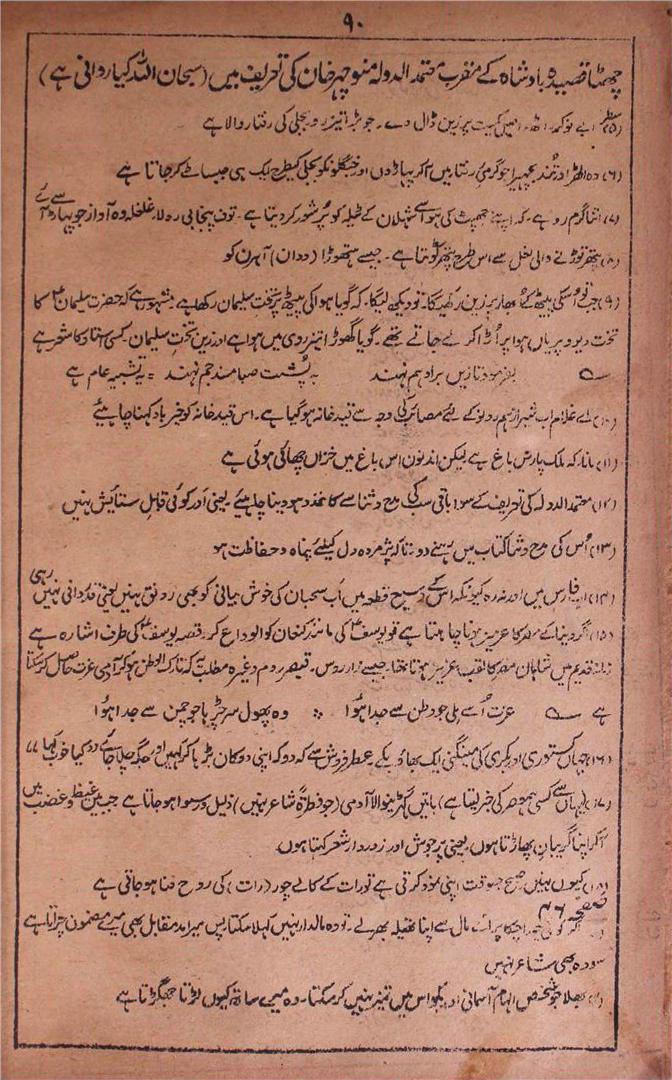 ۹۰
چھٹا قصیدہ بادشاہ کے مقرب معتمد الدولہ منوچہر خان کی تعریف میں (سبحان اللہ کیا روانی ہے)
ڈال دے۔ جو بڑا تیز رو بجلی کی رفتار والا ہے
(۶) وہ الھڑ اور تند بچھیرا جو گرمی رفتار میں آکر پہاڑوں اور جنگلونکو بجلی کیطرح ایک ہی جیسا طے کر جاتا ہے
(۷) اتنا گرم رو ہے۔ کہ اپنے جھپٹ کی ہوا سے ثہلان کے ٹیلہ کو پر شور کر دیتا ہے۔ غلغلہ وہ آواز جو پہاڑ سے آئے
(۸) پتھر توڑنے والی نعل سے اس طرح پتھر کوٹتا ہے۔ جیسے ہتھوڑا آہرن کو
(۹) جب تو اسکی پیٹھ کے اوپر زین رکھیگا۔ تو دیکھ لیگا۔ کہ گویا ہوا کی پیٹھ پر تخت سلیمان رکھا ہے۔ مشہور ہے کہ حضرت سلیمانؑ کا
تخت دیو و پریاں ہوا پر اڑا کر لے جاتے تھے۔ گویا گھوڑا تیز روی میں ہوا ہے اور زین تخت سلیمان۔ کسی استاد کا شعر ہے
بفرمود تا زین براد ہم نہند بہ پُشت صبا مسند جم نہند = یہ تشبیہ عام ہے
(۱۰) اے غلام اب شیراز ہم دونو کے لئے مصائب کی وجہ سے قید خانہ ہو گیا ہے۔ اس قید خانہ کو خیر باد کہنا چاہیئے
(۱۱) مانا کہ ملک پارس باغ ہے لیکن اندنوں اس باغ میں خزاں چھائی ہوئی ہے
(۱۲) معتمد الدولہ کی تعریف کے سوا باقی سب کی مدح و ثنا سے کاغذ دھو دینا چاہیئے یعنی اَور کوئی قابل ستایش نہیں
(۱۳) اُس کی مدح و ثنا کتاب میں رہنے دو۔ تاکہ پژمردہ دل کیلئے پناہ و حفاظت ہو
(۱۴) اب فارس میں اور نہ رہ کیونکہ اس کے وسیع قطعہ میں اَب سحبان کی خوش بیانی کو بھی رونق نہیں یعنی قدردانی نہیں رہی
(۱۵) اگر دنیا کے مصر کا عزیز ہونا چاہتا ہے تو یوسفؑ کی مانند کنعان کو الوداع کر۔ قصہ یوسفؑ کی طرف اشارہ ہے
زمانہ قدیم میں شاہان مصر کا لقب عزیز ہوتا تھا۔ جیسے زار روس۔ قیصر روم وغیرہ مطلب یہ کہ تارک الوطن ہو کر آدمی عزت حاصل کر سکتا
ہے عزت اُسے ملی جو وطن سے جدا ہوا ∴ وہ پھول سر چڑھا جو چمن سے جدا ہوا
(۱۶) جہاں کستوری اور بکری کی مینگنی ایک بھاؤ بکے۔ عطر فروش سے کہدو کہ اپنی دوکان بڑھا کر کہیں اور جگہ چلا جائے کیا خوب کہا
(۱۷) (یہاں سے کسی ہمعصر کی خبر لیتا ہے) باتیں گھڑنے والا آدمی (جو فطرۃً شاعر نہیں) ذلیل و رسوا ہو جاتا ہے جب میں غیظ و غضب میں
آکر اپنا گریبان پھاڑتا ہوں یعنی پر جوش اور زوردار شعر کہتا ہوں
(۱۸) کیوں نہیں صبح جسوقت اپنی نمود کرتی ہے تو رات کے کالے چور (رات) کی روح فنا ہو جاتی ہے
صفحہ ۴۶
پرائے مال سے اپنا تھیلہ بھر لے۔ تو وہ مالدار نہیں کہلا سکتا پس میرا مد مقابل بھی میرے مضمون چراتا ہے
سو وہ بھی شاعر نہیں
بھلا جو شخص الہام آسمانی اور بکواس میں تمیز نہیں کر سکتا۔ وہ میرے ساتھ کیوں لڑتا جھگڑتا ہے